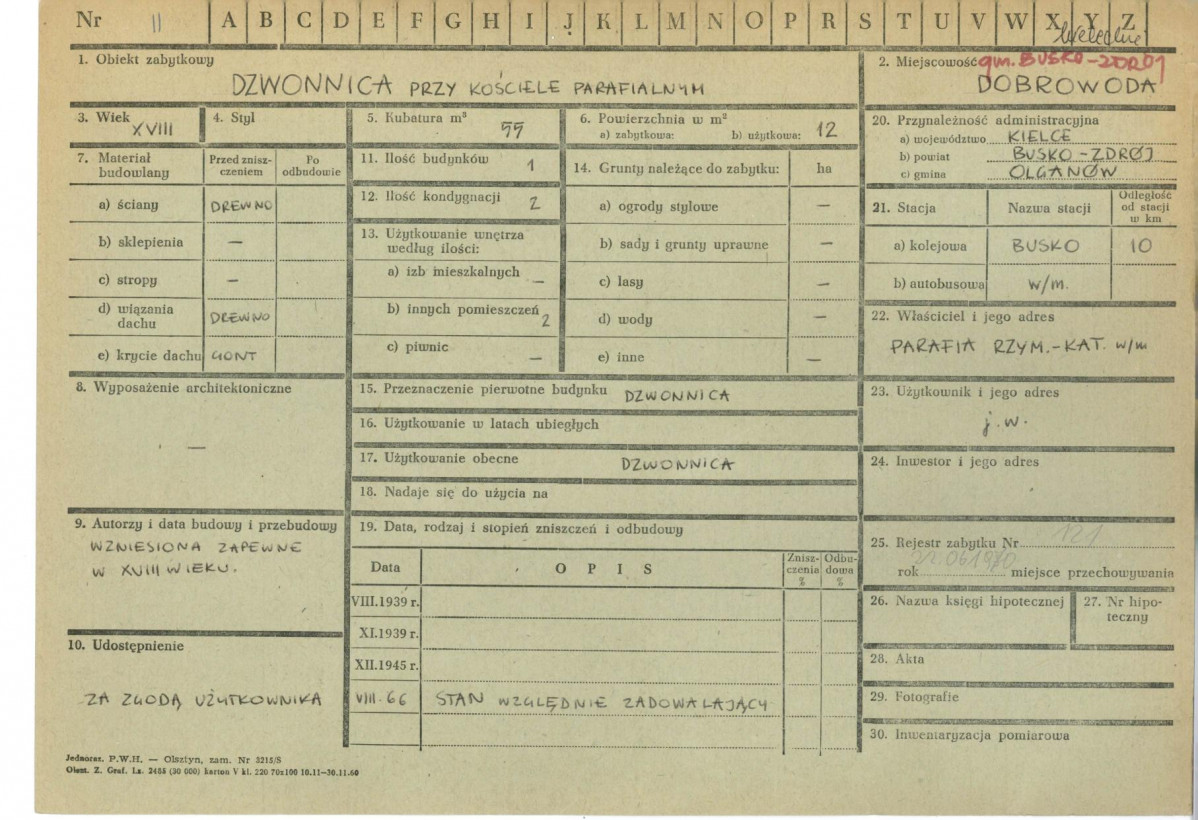 Nr 11 A B C D E F G H I J K L M N O P R S T U V W X Y Z
1. Obiekt zabytkowy
DZWONNICA PRZY KOŚCIELE PARAFIALNYM
2. Miejscowość gm. BUSKO-ZDRÓJ
DOBROWODA
3. Wiek
XVIII
4. Styl
5. Kubatura m³
55
6. Powierzchnia w m²
a) zabytkowa: b) użytkowa: 12
20. Przynależność administracyjna
a) województwo KIELCE
b) powiat BUSKO-ZDRÓJ
c) gmina OLGANÓW
7. Materiał budowlany
Przed zniszczeniem
Po odbudowie
a) ściany DREWNO
b) sklepienia —
c) stropy —
d) wiązania dachu DREWNO
e) krycie dachu GONT
11. Ilość budynków 1
12. Ilość kondygnacji 2
13. Użytkowanie wnętrza
według ilości:
a) izb mieszkalnych —
b) innych pomieszczeń 2
c) piwnic —
14. Grunty należące do zabytku: ha
a) ogrody stylowe —
b) sady i grunty uprawne —
c) lasy —
d) wody —
e) inne —
21. Stacja Nazwa stacji Odległość od stacji w km
a) kolejowa BUSKO 10
b) autobusowa w/m.
22. Właściciel i jego adres
PARAFIA RZYM.-KAT. w/m
8. Wyposażenie architektoniczne
—
15. Przeznaczenie pierwotne budynku DZWONNICA
16. Użytkowanie w latach ubiegłych
17. Użytkowanie obecne DZWONNICA
18. Nadaje się do użycia na
23. Użytkownik i jego adres
j.w.
24. Inwestor i jego adres
9. Autorzy i data budowy i przebudowy
WZNIESIONA ZAPEWNE
W XVIII WIEKU.
19. Data, rodzaj i stopień zniszczeń i odbudowy
Data O P I S Zniszczenia % Odbudowa %
VIII.1939 r.
XI.1939 r.
XII.1945 r.
VIII.66 STAN WZGLĘDNIE ZADOWALAJĄCY
25. Rejestr zabytku Nr 121
rok miejsce przechowywania
26. Nazwa księgi hipotecznej
27. Nr hipoteczny
10. Udostępnienie
ZA ZGODĄ UŻYTKOWNIKA
28. Akta
29. Fotografie
30. Inwentaryzacja pomiarowa
Jednoraz. P.W.H. — Olsztyn, zam. Nr 3215/S
Olszt. Z. Graf. Lz. 2468 (30 000) karton V kl. 220 70x100 10.11—30.11.60